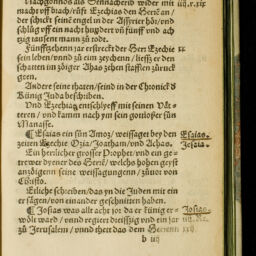 Nachgonnos als Sennacherib wider mit
macht vff brach/růfft Ezechias den Herrē an/
der schickt seinē engel in der Assyrier hör/vnd
schlůg vff ein nacht hundert vñ fünff vnd ach
tzig tausent mann zů rode.
Fünffzehenn jar erstreckt der Herr Ezechie
sein leben/vnnd zů eim zeychenn/ließ er den
schatten im zöiger Ahas zehen staffeln zurück
gren.
Andere seine thaten/seind in der Chronick d
Künig Juda beschriben.
Vnd Ezechias entschlyeff mit seinen Väts
teren/vnd kamm nach ym sein gotloser sůn
Manasse.
¶ Esaias ein sůn Amoz/weissaget bey den
zeiten Ezechie Ozia/Joatham/vnd Achas.
Ein herrlicher grosser Prophet/vnd ein ge-
trewer dyener des Herrē/welchs hohen geyst
anzöigenn seine weissagungenn/zůuor von
Christo.
Etliche schreiben/das yn die Juden mit ein
er sägen/von einander geschnitten haben.
¶ Josias was allt acht jor da er künig er-
wölt ward/vnnd regiert dreissig vnd ein jar
zů Jerusalem/vnnd thett das dem Herrenn
b iiij
iiij.r.xix
xx
Esaias.
Jesaia.
Josias.
iiij.Re.
xxij.